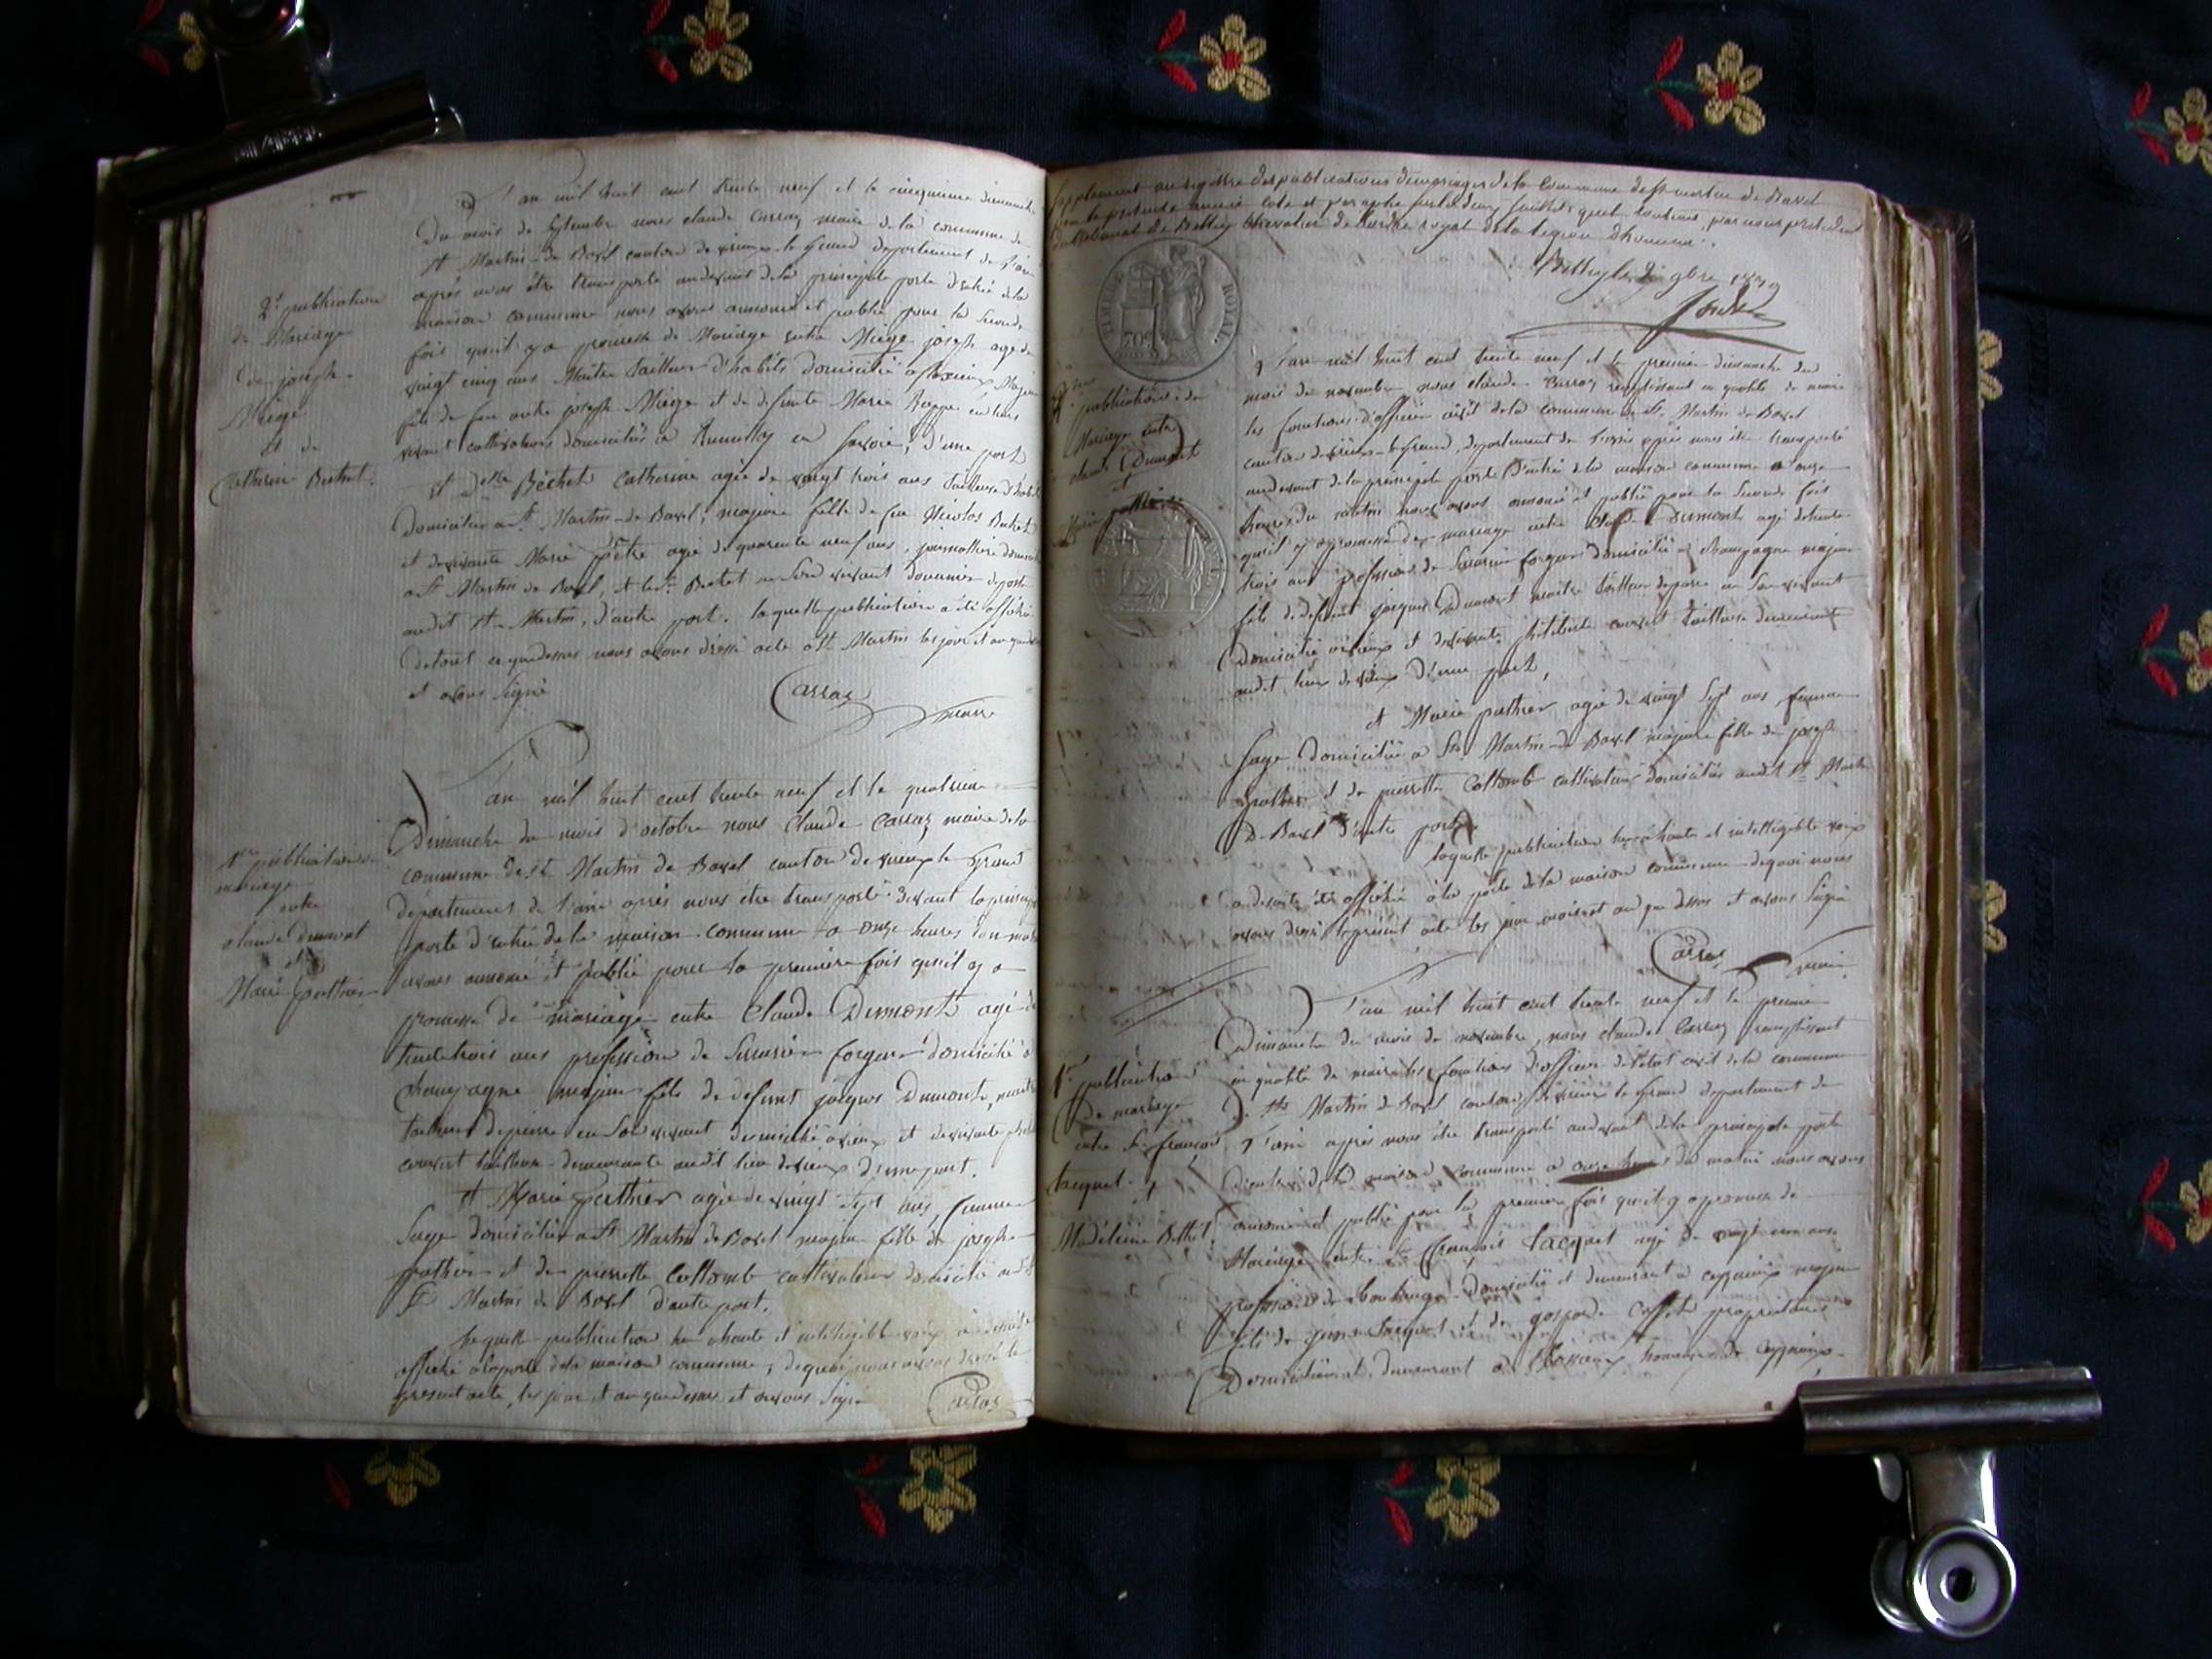 L'an mil huit cent trente neuf et le cinquieme dimanche
Du mois de Septembre nous claude Carraz maire de la commune de
St Martin de Bavel canton de virieux le Grand departement de l'ain
après nous être transporté au devant de la principale porte d'entrée de la
maison commune nous avons annoncé et publié pour la Seconde
fois qu'il y a promesse de Mariage entre Miege joseph agé de
vingt cinq ans Maitre tailleur d'habits domicilié a
fils de feu autre joseph Miege et de defunte Marie en leurs
vivant cultivateurs domiciliés a Rumilly en Savoie, d'une part
et Delle Béchet Catherine agée de vingt trois ans tailleuse d'habits
Domiciliée a St Martin de Bavel, majeure fille de feu Nicolas Bechet
et de vivante Marie pètre agée de quarante neuf ans, journalliere
a St Martin de Bavel, et le Sr Bechet en Son vivant douanier de poste
audit St Martin, d'autre part. laquelle publication a été affichée
de tout ce que dessus nous avons dressé acte a St Martin les jour et an que
et avons Signé
Carraz
maire
2e publication
de Mariage
de joseph
Miege
et de
Catherine Bechet.
L'an mil huit cent trente neuf et le quatrieme
Dimanche du mois d'octobre nous Claude Carraz maire de la
commune de St Martin de Bavel canton de virieux le Grand
departement de l'ain après nous être transporté devant la principale
porte d'entrée de la maison commune a onze heures du matin
avons annoncé et publié pour la premiere fois qu'il y a
promesse de mariage entre Claude Dumont agé de
trente trois ans profession de Serrurier forgeur domicilié a
champagne majeur fils de defunt jacques Dumont, maitre
tailleur de pierre en Son vivant domicilié a vieux et de vivante
convert tailleuse demeurante audit lieu de vieux d'une part.
et Marie pathier agée de vingt Sept ans, femme
Sage domiciliée a St Martin de Bavel majeure fille de joseph
pathier et de pierrette Collomb cultivateurs domiciliés audit
St Martin de Bavel d'autre part.
laquelle publication lue a haute et intelligible voix a ensuite
affiché a la porte de la maison commune, de quoi nous avons dressé le
present acte, les jour et an que dessus et avons Signé
Carraz
1re publication de
mariage
entre
claude Dumont
et
Marie pathier
Supplement au registre des publications de mariages de la Commune de St martin de Bavel
pour la presente année coté et paraphé sur les deux feuillets qu'il contient, par nous president
du tribunal de Belley chevalier de l'ordre royal de la legion d'honneur.
Belley le 2 9bre 1839
TIMBRE ROYAL
L'an mil huit cent trente neuf et le premier dimanche du
mois de novembre nous claude Carraz remplissant en qualité de maire
les fonctions d'officier civil de la commune de St Martin de Bavel
canton de virieux le Grand, departement de l'ain après nous être transporté
au devant de la principale porte d'entrée de la maison commune a onze
heures du matin nous avons annoncé et publié pour la Seconde fois
qu'il y a promesse de mariage entre Claude Dumont agé de trente
trois ans profession de Serrurier forgeur domicilié a Champagne majeur
fils de defunt jacques Dumont maitre tailleur de pierre en Son vivant
Domicilié a vieux et de vivante philiberte convert tailleuse demeurante
audit lieu de vieux d'une part,
et Marie pathier agée de vingt Sept ans femme
Sage domiciliée a St Martin de Bavel majeure fille de joseph
pathier et de pierrette Collomb cultivateurs domiciliés audit St Martin
De Bavel d'autre part,
laquelle publication lue a haute et intelligible voix
a ensuite été affichée à la porte de la maison commune de quoi nous
avons dressé le present acte les jour mois et an que dessus et avons Signé
Carraz
maire
2me
publication de
Mariage entre
claude Dumont
et
Marie pathier
L'an mil huit cent trente neuf et le premier
Dimanche du mois de novembre, nous claude Carraz remplissant
en qualité de maire les fonctions d'officier de l'etat civil de la commune
De St Martin de Bavel canton de virieux le Grand departement de
L'ain après nous être transporté au devant de la principale porte
d'entrée de la maison commune a onze heures du matin nous avons
annoncé et publié pour la premiere fois qu'il y a promesse de
Mariage entre Sr François Jacquet agé de vingt ans
profession de domicilié et demeurant a Ceyzerieux majeur
fils de Jacquet et de gasparde proprietaires
Domiciliés et demeurant a hameau de Ceyzerieux
1re
publication
De mariage
entre Sr françois
Jacquet et
Madeleine Bethet.